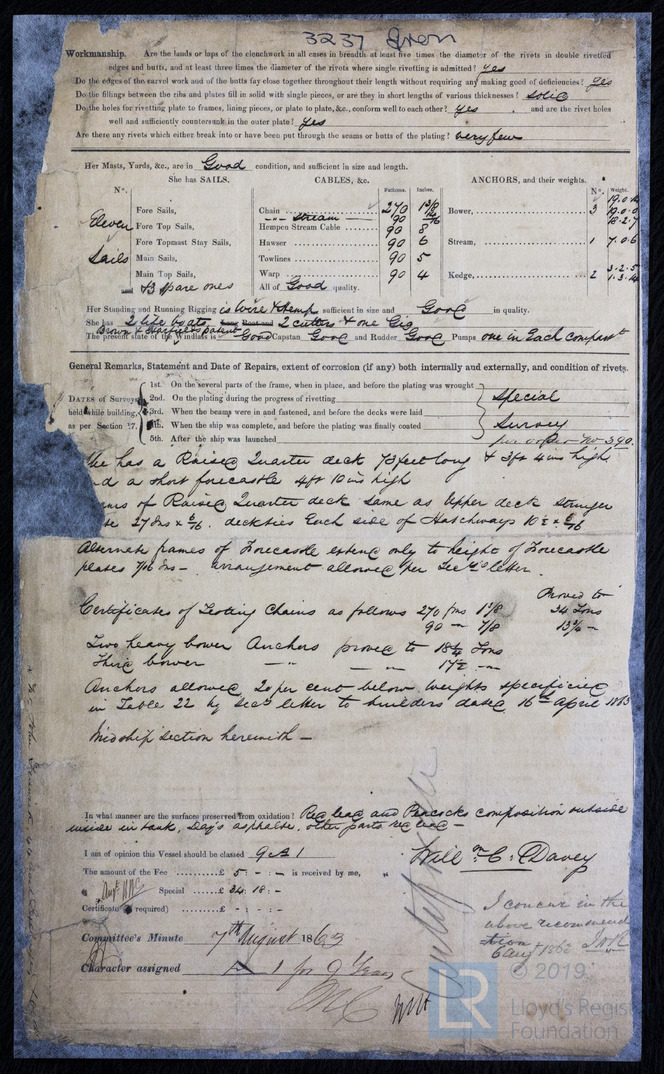 3237 Iron
Workmanship. Are the lands or laps of the clenchwork in all cases in breadth at least five times the diameter of the rivets in double rivetted
edges and butts, and at least three times the diameter of the rivets where single rivetting is admitted? yes
Do the edges of the carvel work and of the butts fay close together throughout their length without requiring any making good of deficiencies? yes
Do the fillings between the ribs and plates fill in solid with single pieces, or are they in short lengths of various thicknesses? solid
Do the holes for rivetting plate to frames, lining pieces, or plate to plate, &c., conform well to each other? yes and are the rivet holes
well and sufficiently countersunk in the outer plate? yes
Are there any rivets which either break into or have been put through the seams or butts of the plating? very few
Her Masts, Yards, &c., are in Good condition, and sufficient in size and length.
She has SAILS. CABLES, &c. Fathoms. Inches. ANCHORS, and their weights. Nº. Weight.
N°.
Fore Sails, Chain 270 1 7/8 Bower, 3 19.0.0 18.2.7
Eleven Fore Top Sails, Stream 90
Hempen Stream Cable 90 8
Fore Topmast Stay Sails, Hawser 90 6 Stream, 1 7.0.6
Sails Main Sails, Towlines 90 5
Main Top Sails, Warp 90 4 Kedge, 2 3.2.5 1.3.14
and 13 spare ones All of Good quality.
Her Standing and Running Rigging is Wire & Hemp sufficient in size and Good in quality.
She has 2 life boats, Long Boat and 2 cutters & one Gig
Brown & Harfield's patent
The present state of the Windlass is Good Capstan Good and Rudder Good Pumps one in Each compart^t
General Remarks, Statement and Date of Repairs, extent of corrosion (if any) both internally and externally, and condition of rivets.
DATES of Surveys held while building, as per Section 17.
1st. On the several parts of the frame, when in place, and before the plating was wrought
2nd. On the plating during the progress of rivetting Special
3rd. When the beams were in and fastened, and before the decks were laid
4th. When the ship was complete, and before the plating was finally coated Survey
5th. After the ship was launched per order No 390.
She has a Raised Quarter deck 73 feet long & 3ft 4 ins high
and a short forecastle 4ft 10 ins high
of Raised Quarter deck same as Upper deck stringer
27 Ins x 6/16. deck ties Each side of Hatchways
Alternate frames of Forecastle extend only to height of Forecastle
plates arrangement allowed per Sec^y's letter.
Proved to
Certificates of Testing Chains as follows 270 fms 1 7/8 34 Tons
90 " 7/8
Two heavy bower Anchors proved to 18 1/4 Tons
Third bower - " - " 17 1/2 "
Anchors allowed 20 per cent below Weights specified
in Table 22 by Sec^y letter to builders dated 16th April 1863
Midship section herewith -
In what manner are the surfaces preserved from oxidation? Red lead and Peacocks composition outside
inside in tank, Day's asphalte, other parts red lead -
I am of opinion this Vessel should be classed 9 A 1
Will^m C. Davey
The amount of the Fee £ 5 - : - is received by me,
Special £ 34 18 : -
Certificate (if required) £ - : - : -
I concur in the
above recommend
ation
6 Aug^t 1863
Committee's Minute 7th August 1863
Character assigned A 1 for 9 Years
© 2019
LR
Lloyd's Register
Foundation